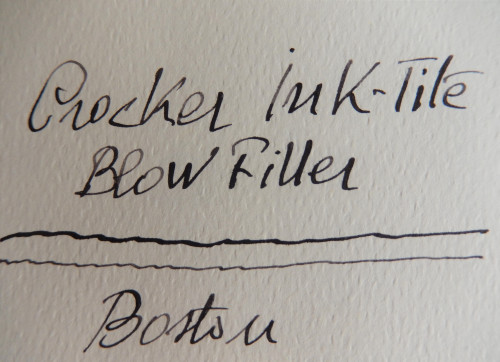 Crocker Ink-Tite
Blow Filler
Boston